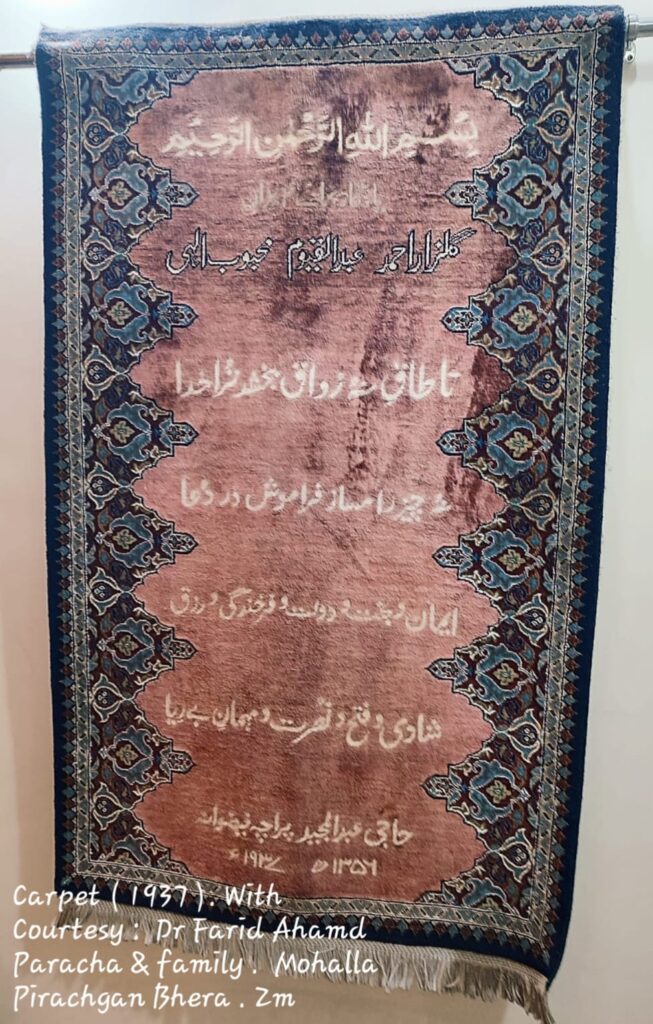 بسم الله الرحمن الرحيم
گلزار احمد عبدالقیوم محبوب الہی
تا طاق نہ رواق بخشد ترا خدا
نہ چیز را مساز فراموش در دعا
ایمان و بخت و دولت و فرخندگی و رزق
شادی و فتح و نصرت و مہمان بے ریا
حاجی عبدالمجید پراچہ
۱۳۵۶ھ ۱۹۳۷ء
Carpet (1937). With
Courtesy : Dr Farid Ahamd
Paracha & family . Mohalla
Pirachgan Bhera . Zm